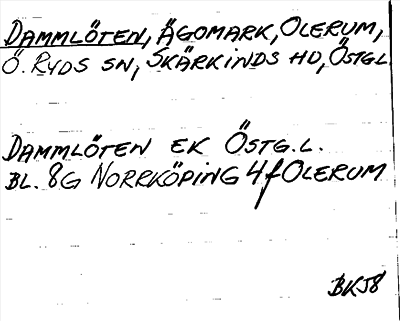 DAMMLÖTEN, ÄGOMARK, OLERUM,
Ö. RYDS SN, SKÄRKINDS HD, ÖSTGL
DAMMLÖTEN EK ÖSTG.L.
BL. 8G NORRKÖPING 4f OLERUM
BKJ8